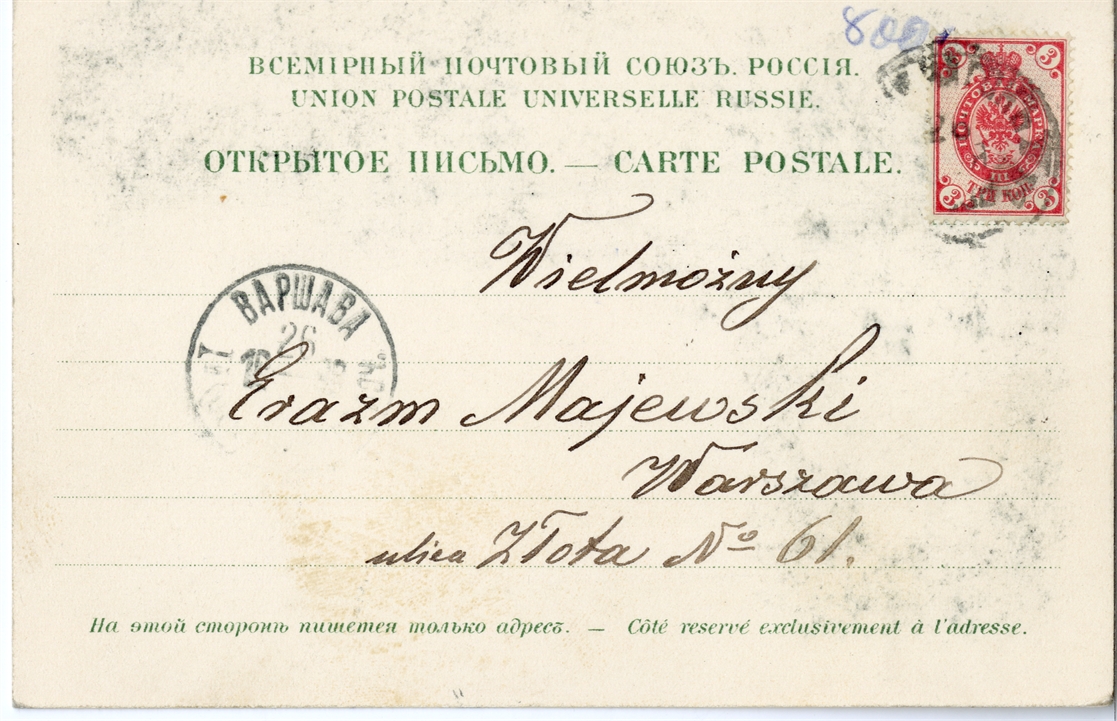 ВСЕМІРНЫЙ ПОЧТОВЫЙ СОЮЗЪ. РОССІЯ.
UNION POSTALE UNIVERSELLE RUSSIE.
ОТКРЫТОЕ ПИСЬМО. — CARTE POSTALE.
3 3
ПОЧТОВАЯ МАРКА
ТРИ КОП.
3 3
Wielmożny
ВАРШАВА
26
Erazm Majewski
Warszawa
ulica Złota No 61.
На этой сторонѣ пишется только адресъ. — Côté reservé exclusivement à l'adresse.